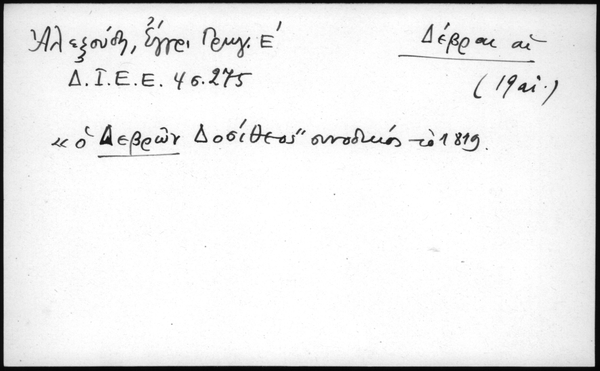 Ἀλεξούδη, Ἔγγρ. Γρηγ. Ε΄
Δ.Ι.Ε.Ε. 4 σ.275
Δέβραι αἱ
(19 αἰ.)
«ὁ Δεβρῶν Δοσίθεος" συνοδικός τὸ 1819.